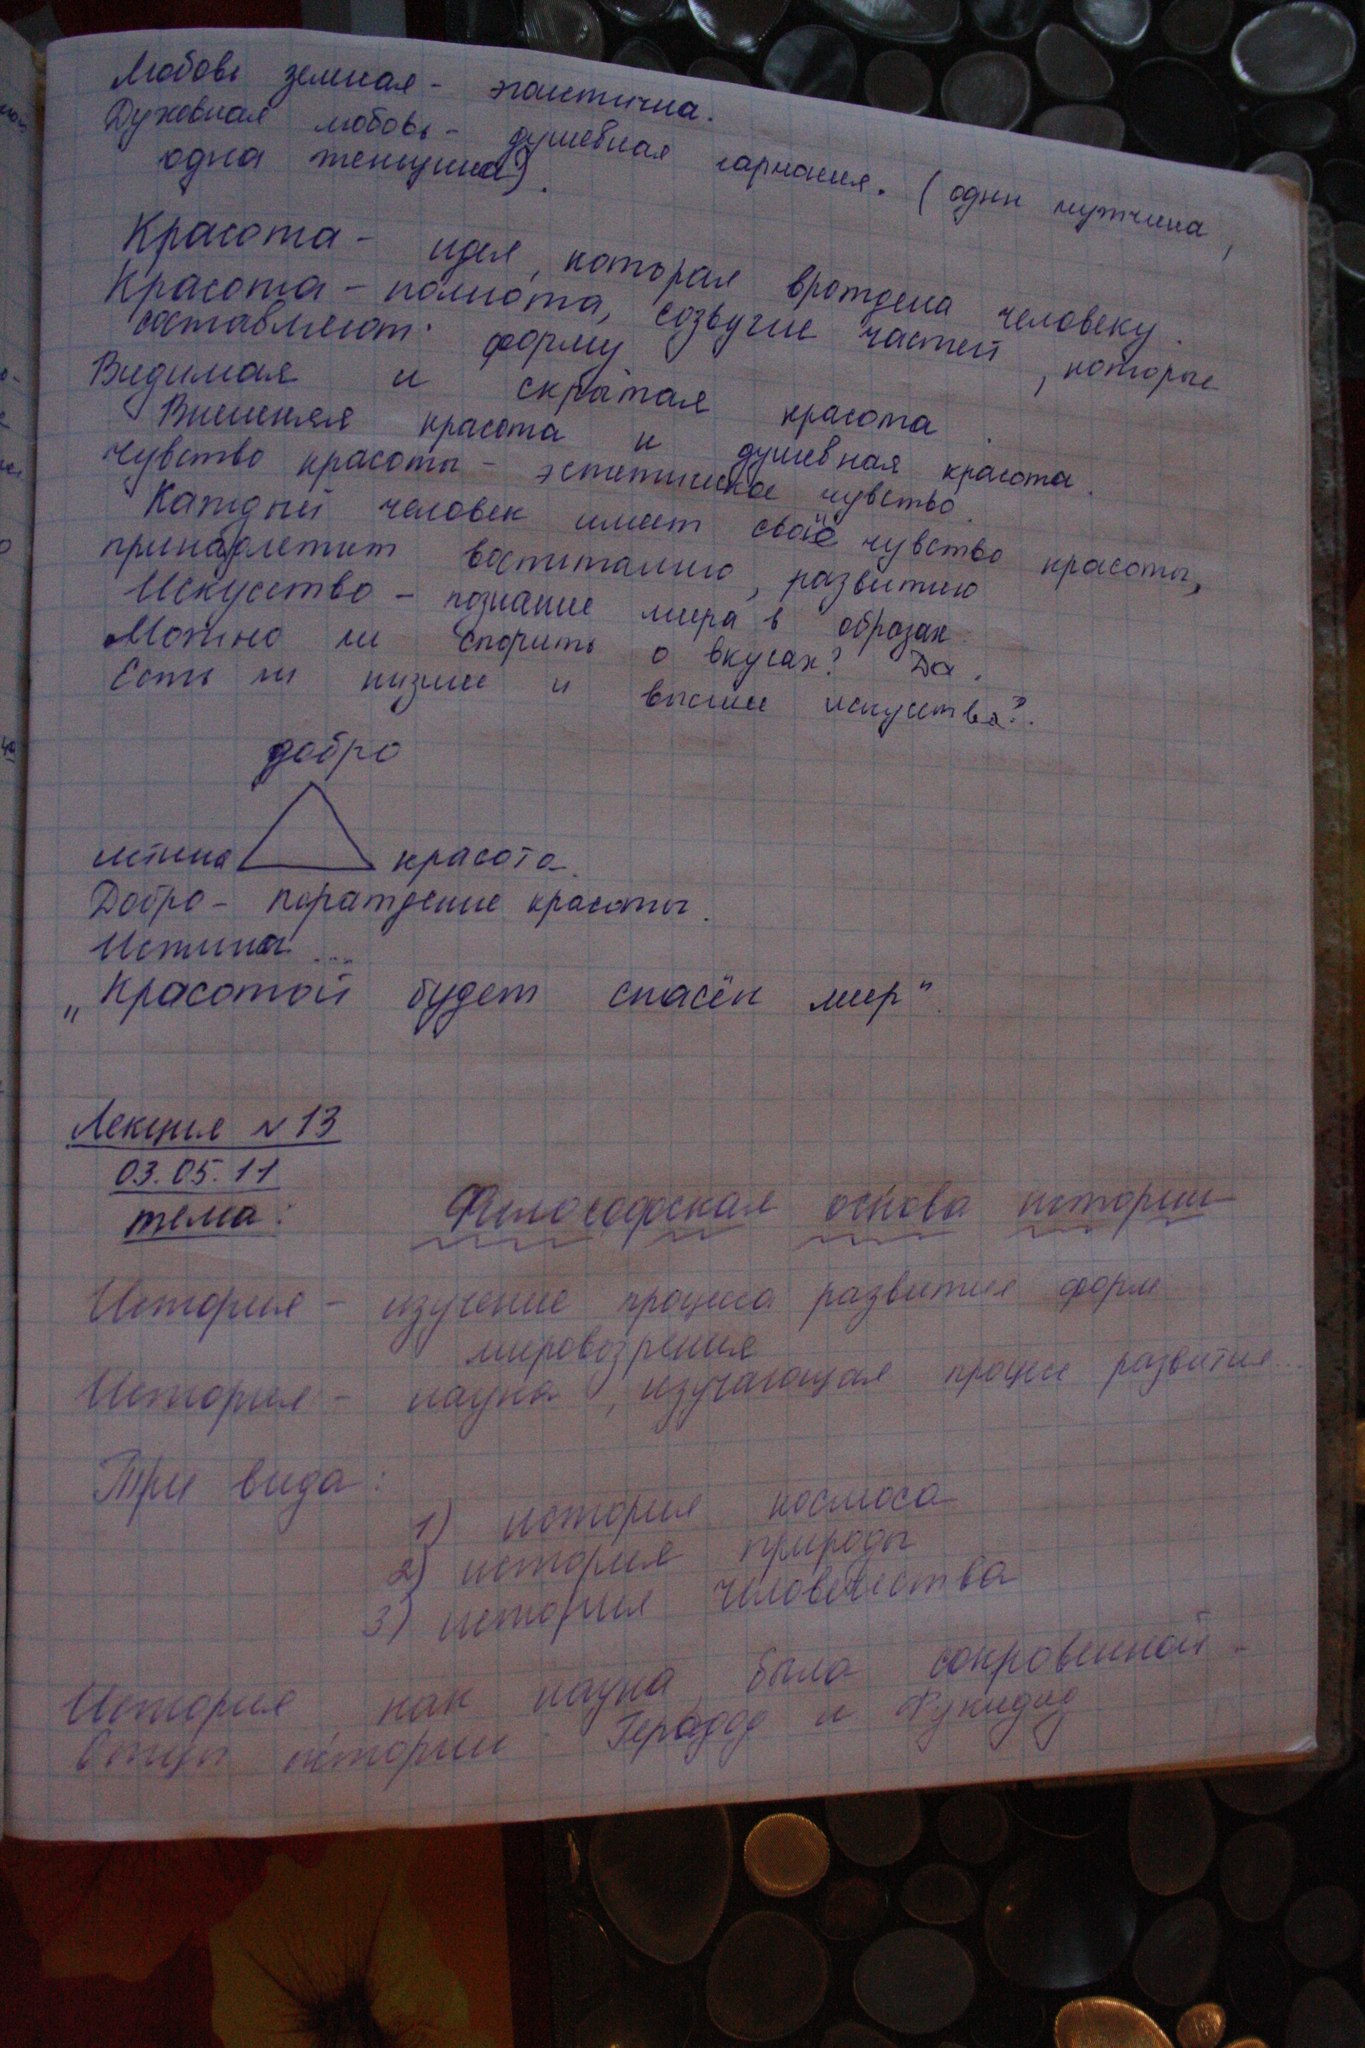 Любовь земная - эгоистична.
Духовная любовь - душевная гармония. (один мужчина,
одна женщина).
Красота - идея, которая врождена человеку.
Красота - полнота, созвучие частей, которые
составляют форму
Видимая и скрытая красота.
Внешняя красота и душевная красота.
Чувство красоты - эстетическое чувство.
Каждый человек имеет своё чувство красоты,
принадлежит воспитанию, развитию
Искусство - познание мира в образах.
Можно ли спорить о вкусах? Да.
Есть ли низшие и высшие искусства?.
добро
истина красота.
Добро - пораждение красоты.
Истина ...
„Красотой будет спасён мир".
Лекция N 13
03.05.11
тема: Философская основа истории
История - изучение процесса развития форм
мировозрения
История - наука, изучающая процесс развития...
Три вида:
1) история космоса
2) история природы
3) история человечества
История, как наука, была сокровенной.
Отцы истории Герадод и Фукидид